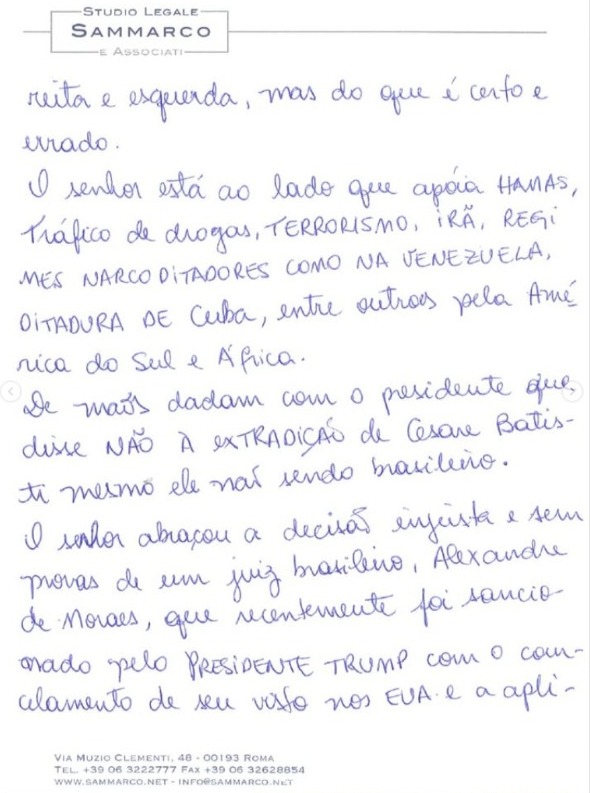 STUDIO LEGALE
SAMMARCO
E ASSOCIATI
reita e esquerda, mas do que é certo e
errado.
O senhor está ao lado que apóia HAMAS,
Tráfico de drogas, TERRORISMO, IRÃ, REGI
MES NARCODITADORES COMO NA VENEZUELA,
DITADURA DE Cuba, entre outros pela Amé
rica do Sul e África.
De maõs dadam com o presidente que
disse NÃO À EXTRADIÇÃO de Cesare Batis-
ti mesmo ele naõ sendo brasileiro.
O senhor abraçou a decisaõ injusta e sem
provas de um juiz brasileiro, Alexandre
de Moraes, que recentemente foi sancio-
nado pelo PRESIDENTE TRUMP com o can-
celamento de seu visto nos EUA e a apli-
VIA MUZIO CLEMENTI, 48 - 00193 ROMA
TEL. +39 06 3222777 FAX +39 06 32628854
WWW.SAMMARCO.NET - INFO@SAMMARCO.NET